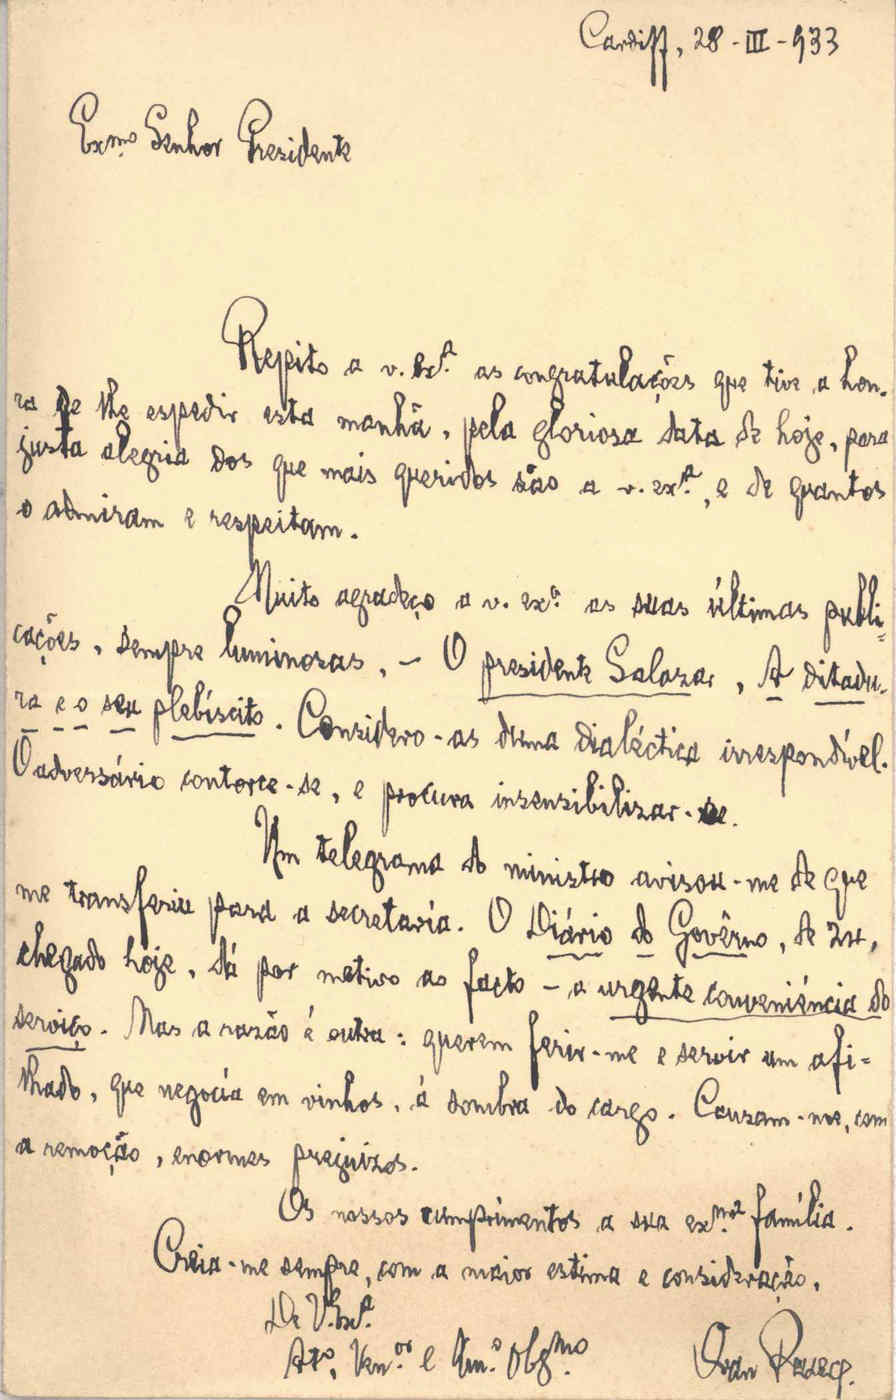 Cardiff, 28-III-933
Exmo Senhor Presidente
Repito a v. exa. as congratulações que tive a hon-
ra de lhe espedir esta manhã, pela gloriosa data de hoje, para
justa alegria dos que mais queridos são a v. exa., e de quantos
o admiram e respeitam.
Muito agradeço a v. exa. as suas últimas publi-
cações, sempre luminosas, - O presidente Salazar, A ditadu-
ra e o seu plebíscito. Considero-as duma dialéctica irrespondível.
O adversário contorce-se, e procura insensibilizar-se.
Um telegrama do ministro avisou-me de que
me transferiu para a secretaría. O Diário do Govêrno, de 24,
chegado hoje, dá por motivo ao facto - a urgente conveniência do
serviço. Mas a razão é outra: querem ferir-me e servir um afi-
lhado, que negocía em vinhos, á sombra do cargo. Causam-me, com
a remoção, enormes prejuizos.
Os nossos cumprimentos a sua exma. família.
Creia-me sempre, com a maior estima e consideração,
De V. Exa.
Ato. Ven.or e Am.o Obgmo